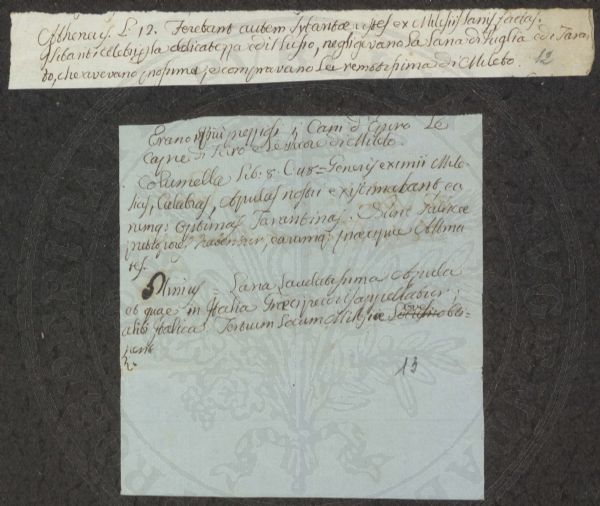 Athenaus. L. 12. Ferebant autem Sybaritae vestes ex Milesiis lanis factas.
I Sibariti celebri p la delicatezza ed il lusso, negligevano la lana di Puglia ed i Tara
to, che avevano prossima, e compravano la remotissima di Mileto.
12
Erano i più pregiati i Cani d'Epiro Le
Capre di Sciro e le lane di Mileto.
Columella lib: 8. Cap Generis eximii Mile
sias, Calabras, Apulas nostri existimabant, ea
rumq: optimas Tarantinas. Nunc Gallicae
pretiosiores habentur, earumq: praecipue Altina
tes.
Plinius - Lana laudatissima Apula
et quae in Italia Graeci pecoris appellatur,
alibi Italica. Tertium locum Milesiae oves obti-
nent
13